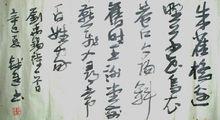 朱雀橋邊
野草花烏衣
巷口夕陽斜
舊時王謝堂前
燕飛入尋常
百姓家
劉禹錫詩一首